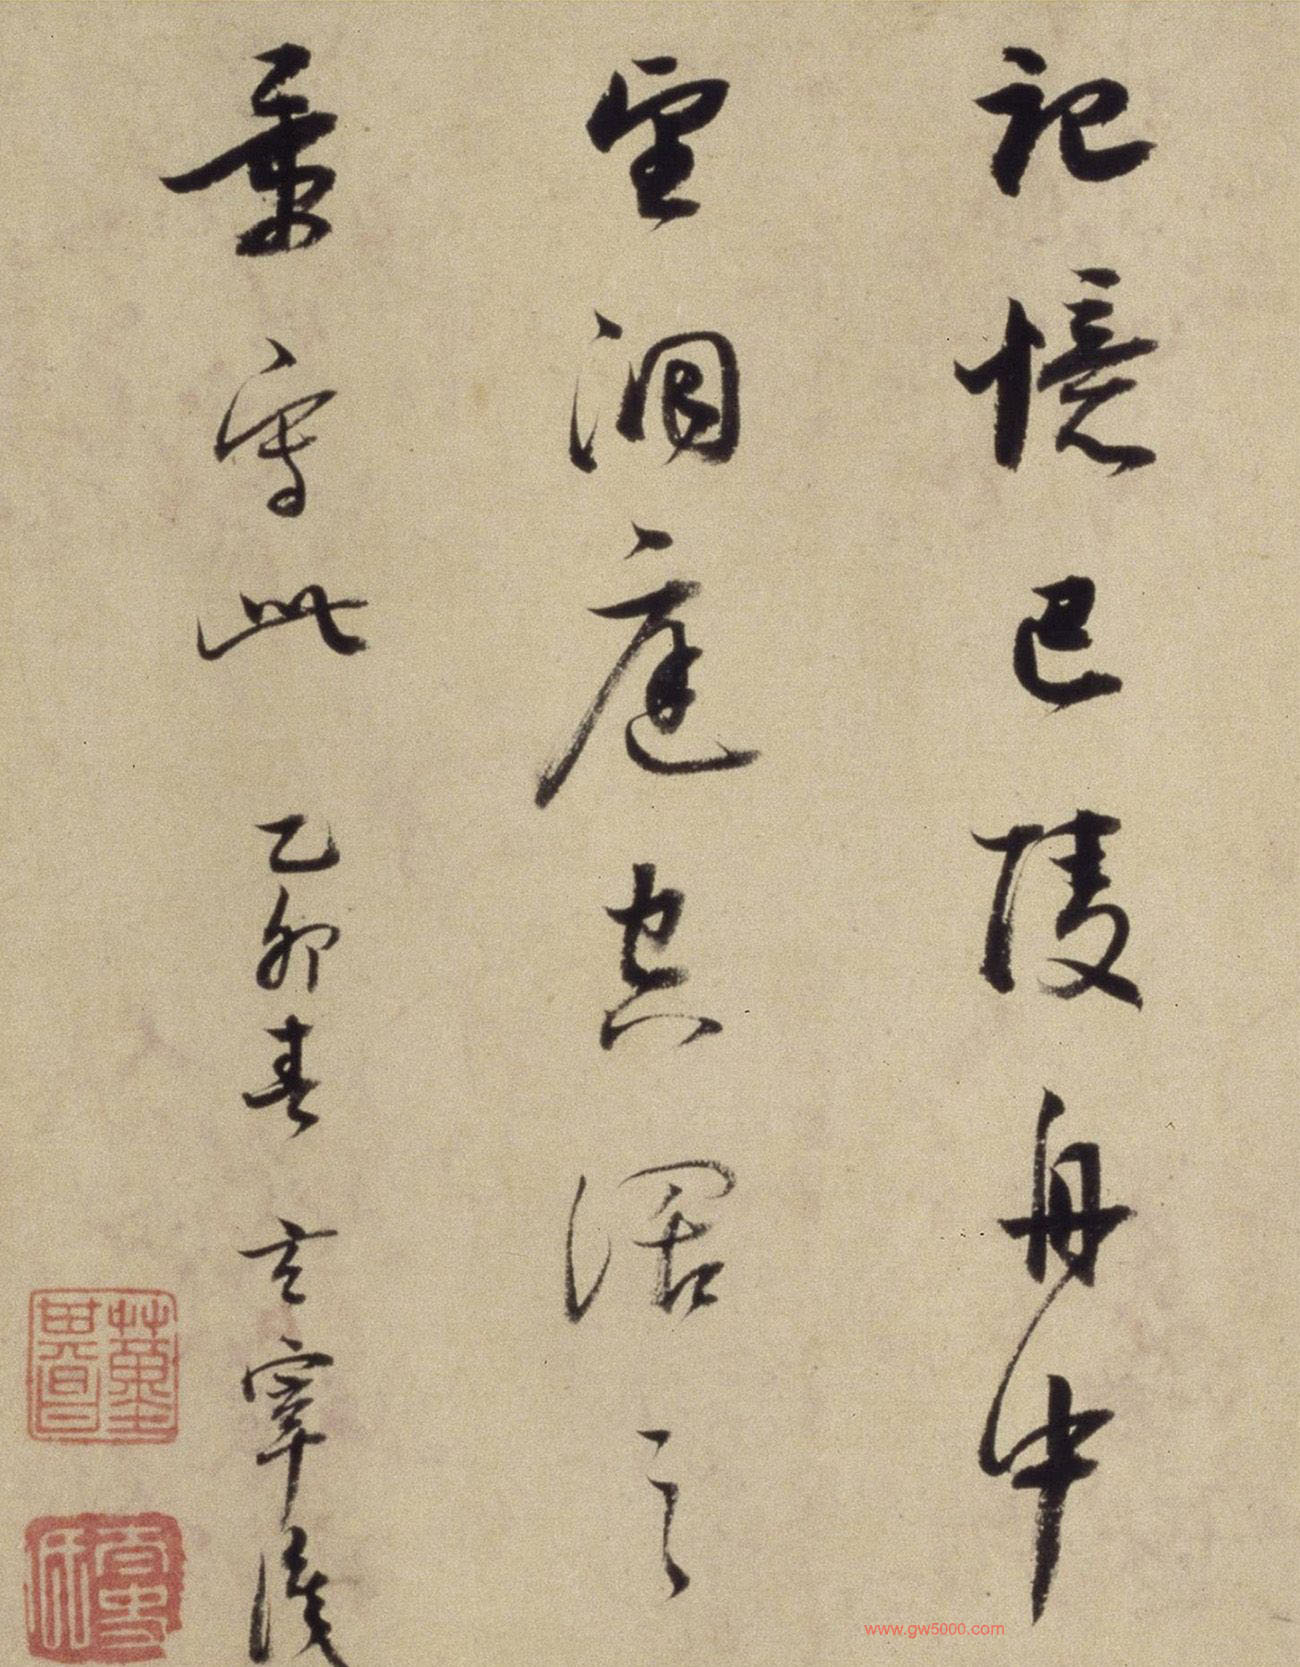 記憶巴陵舟中
望洞庭空闊之
景寫此 乙卯春 玄宰識
董其昌
www.gw5000.com